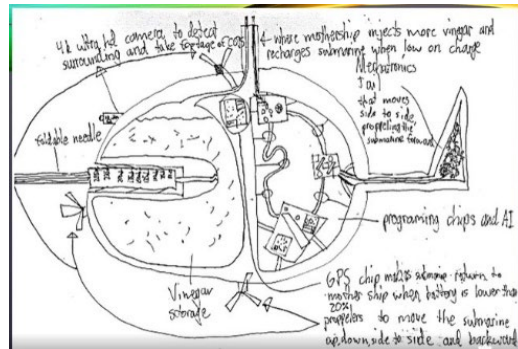 4k ultra hd camera to detect
surrounding and take footage of COTS
where mothership injects more vinegar and
recharges submarine when low on charge
Mechatronics
Tail
that moves
side to side
propelling the
submarine forward
foldable needle
programing chips and AI
Vinegar
storage
GPS chip makes submarine return to
mother ship when battery is lower than
20%
propellers to move the submarine
up, down, side to side and backward